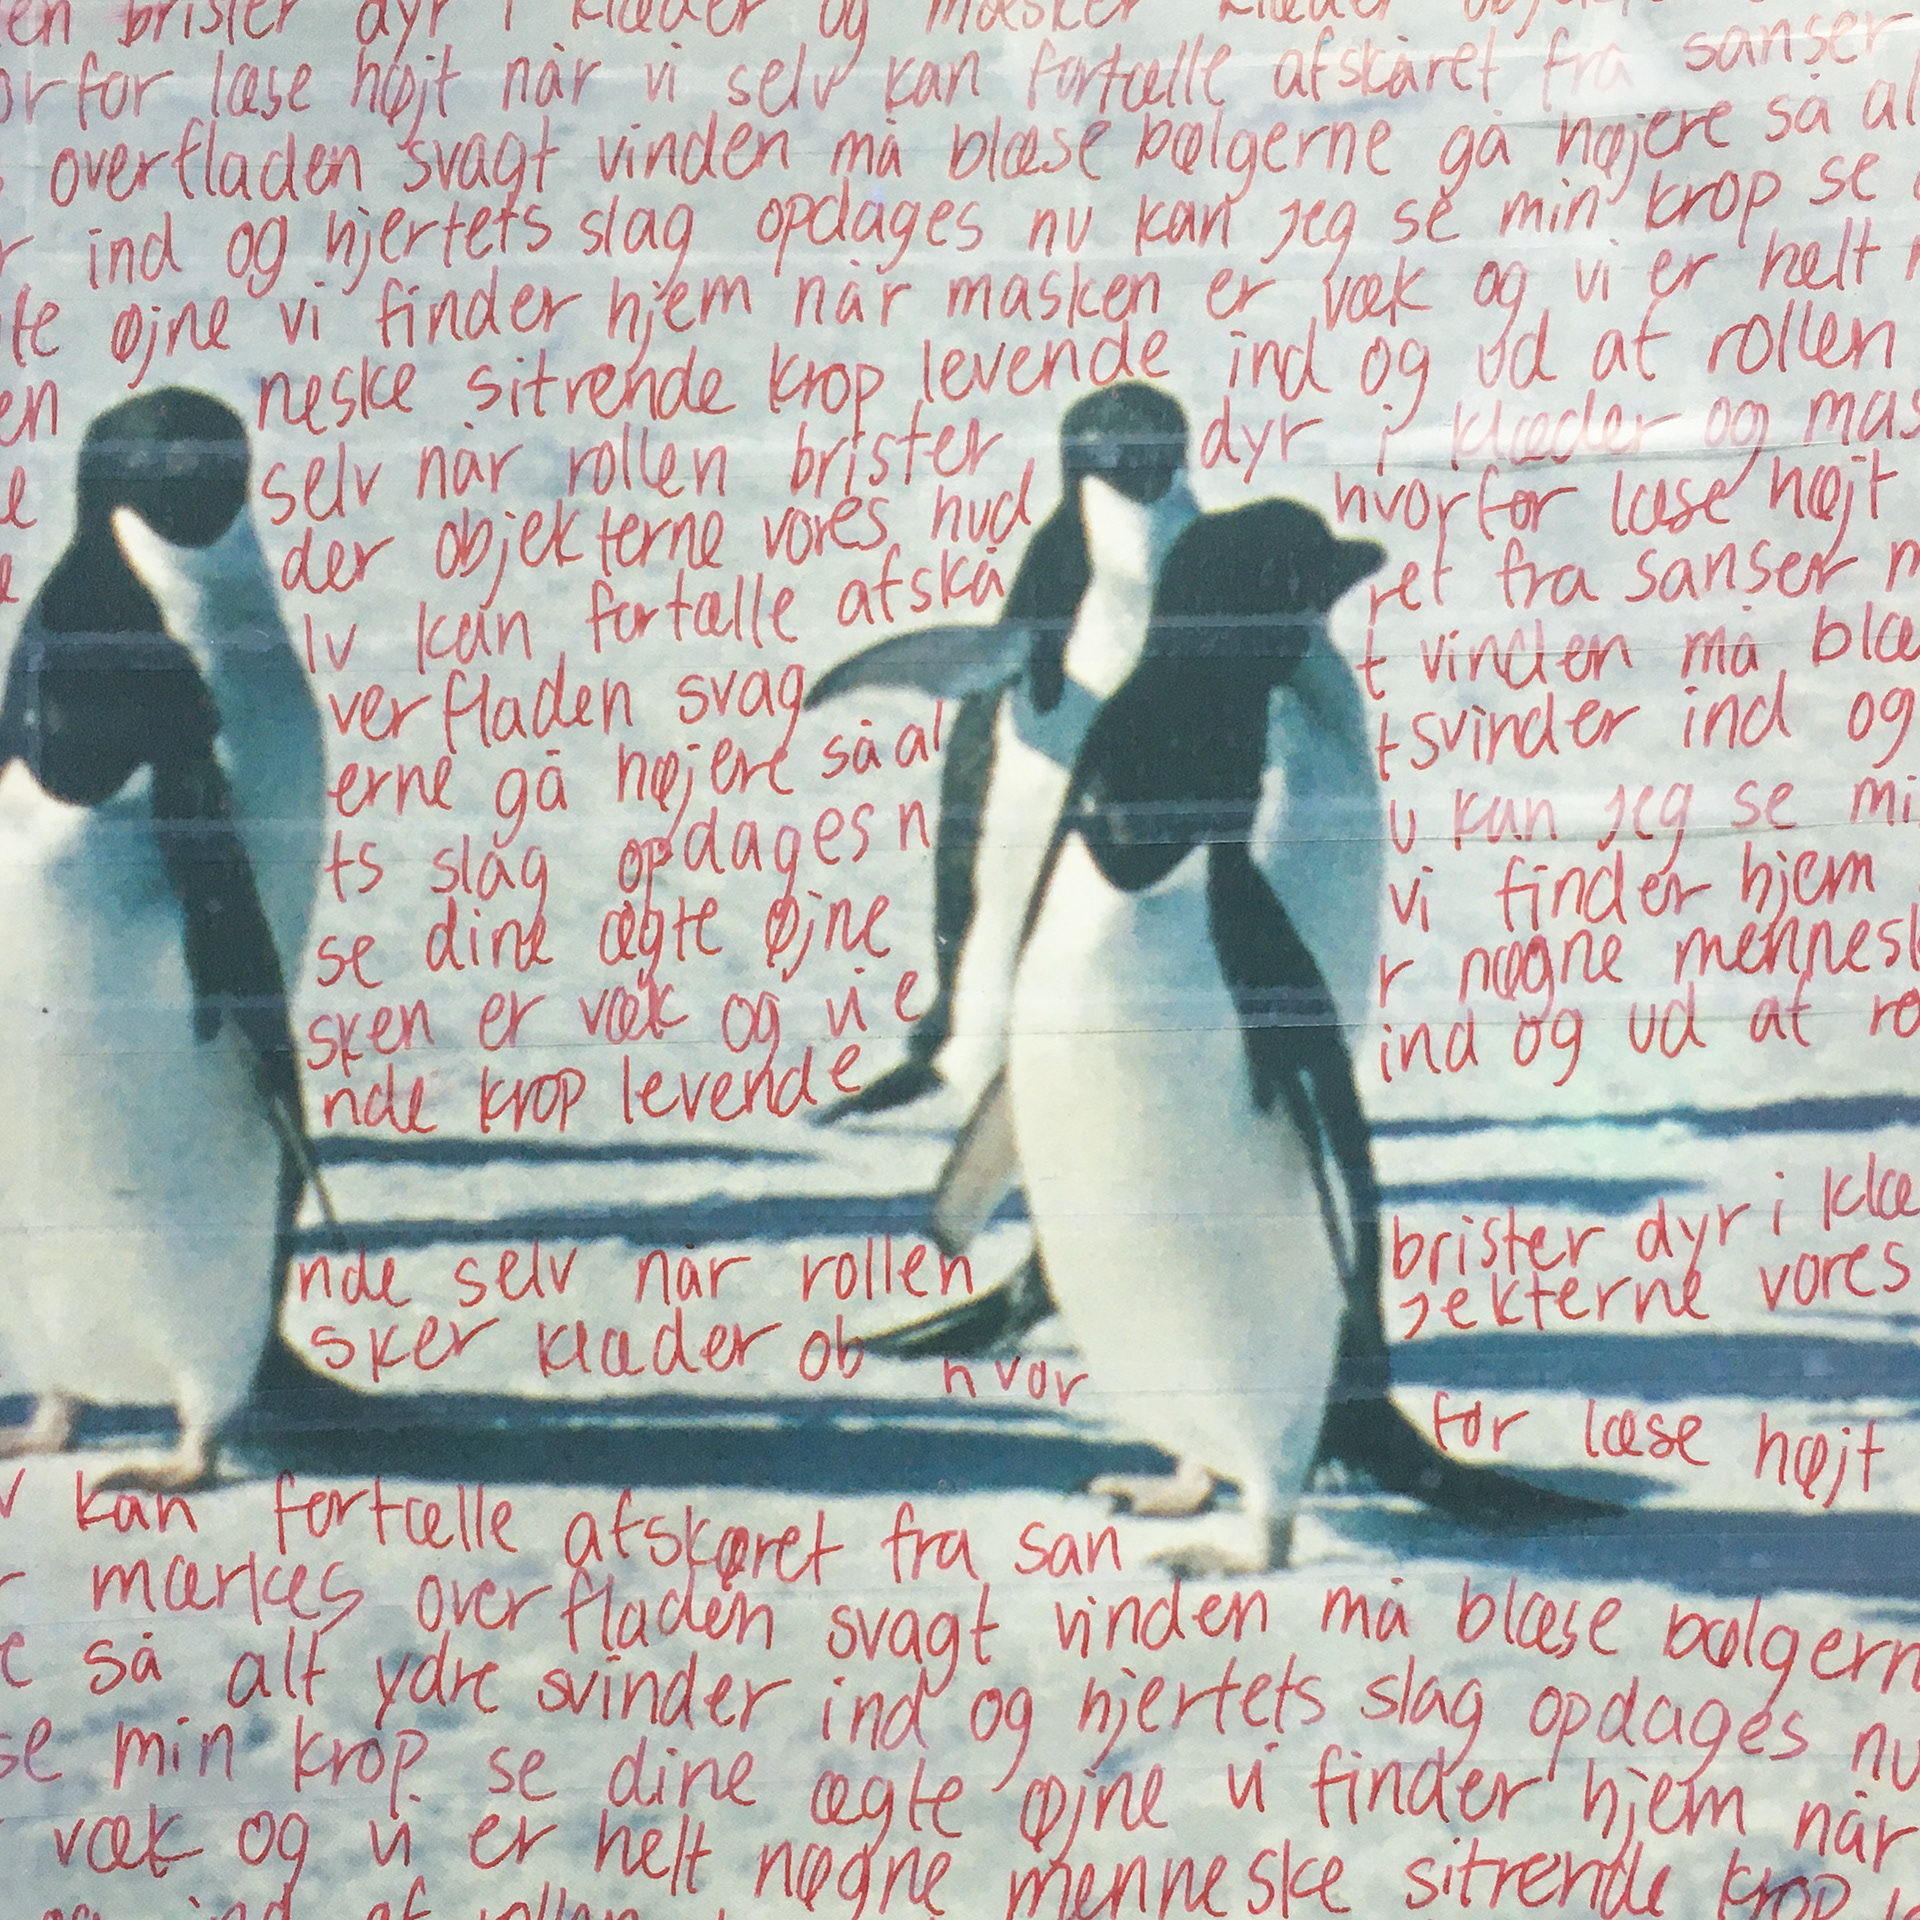 en brister dyr i klæder og masker klæder
orfor læse højt når vi selv kan fortælle afskåret fra sanser
overfladen svagt vinden må blæse bølgerne gå højere så al
r ind og hjertets slag opdages nu kan jeg se min krop se
te øjne vi finder hjem når masken er væk og vi er helt
en neske sitrende krop levende ind og ud af rollen
e selv når rollen brister dyr i klæder og mas
der objekterne vores hud hvorfor læse højt
lv kan fortælle afskå ret fra sanser m
verfladen svag t vinden må blæ
erne gå højere så al tsvinder ind og
ts slag opdages n u kan jeg se mi
se dine ægte øjne vi finder hjem
sken er væk og vi e r nøgne mennesk
nde krop levende ind og ud af ro
nde selv når rollen brister dyr i klæ
sker klæder ob jekterne vores
hvor for læse højt
v kan fortælle afskåret fra san
r mærkes overfladen svagt vinden må blæse bølgern
e så alt ydre svinder ind og hjertets slag opdages nu
se min krop se dine ægte øjne vi finder hjem når
væk og vi er helt nøgne menneske sitrende krop